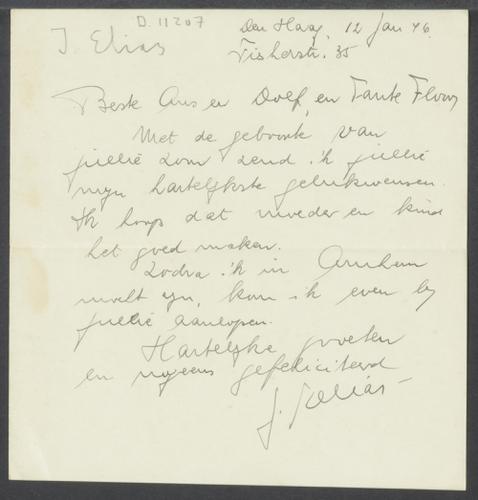 D. 11207
J. Elias
Den Haag, 12 Jan 46.
Visherstr. 35
Beste Ans en Dolf, en Tante Floor
Met de geboorte van
jullie zoon zend ik jullie
mijn hartelijkste gelukwensen.
Ik hoop dat moeder en kind
het goed maken.
Zodra ik in Arnhem
mocht zijn, kom ik even bij
jullie aanlopen.
Hartelijke groeten
en nogeens gefeliciteerd
J. Elias